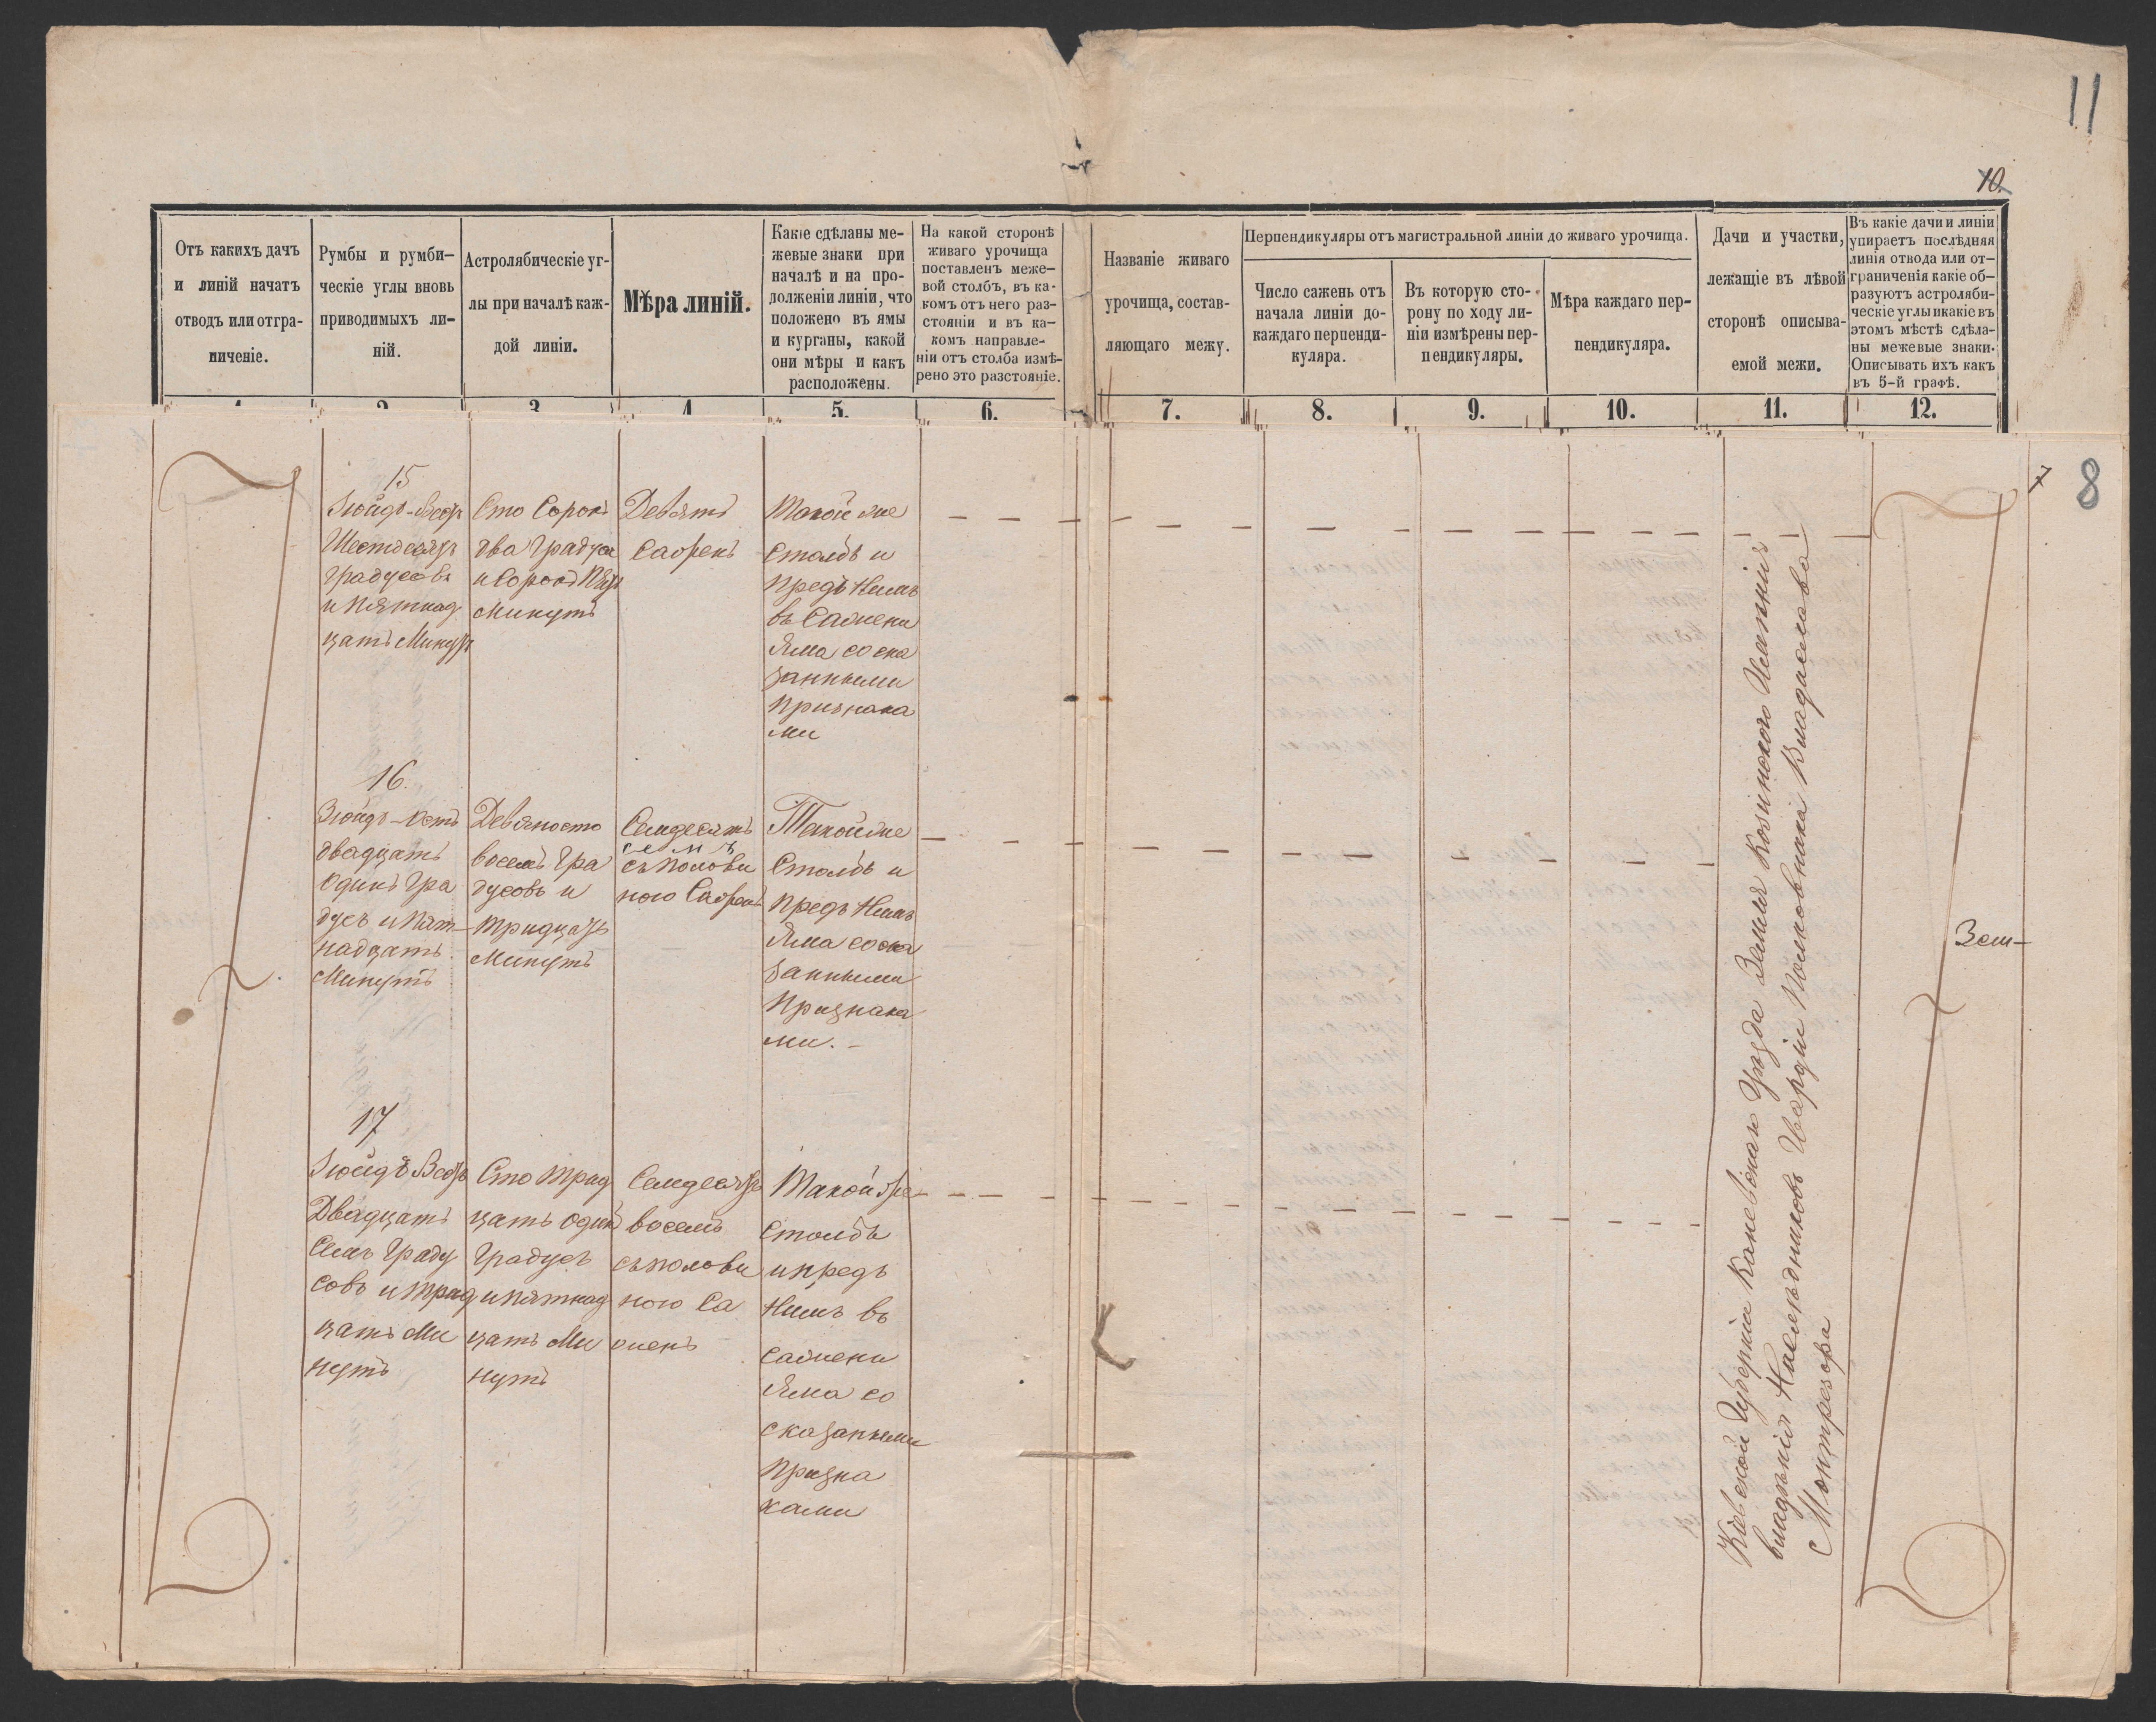 11
10.
Отъ какихъ дачъ
и линій начатъ
отводъ или отгра-
ниченіе.
Румбы и румби-
ческіе углы вновь
приводимыхъ ли-
ній.
Астролябическіе уг-
лы при началѣ каж-
дой линіи.
Мѣра линій.
Какіе сдѣланы ме-
жевые знаки при
началѣ и на про-
долженіи линіи, что
положено въ ямы
и курганы, какой
они мѣры и какъ
расположены.
На какой сторонѣ
живаго урочища
поставленъ меже-
вой столбъ, въ ка-
комъ отъ него раз-
стояніи и въ ка-
комъ направле-
ніи отъ столба измѣ-
рено это разстояніе.
Названіе живаго
урочища, состав-
ляющаго межу.
Перпендикуляры отъ магистральной линіи до живаго урочища.
Число сажень отъ
начала линіи до-
каждаго перпенди-
куляра.
Въ которую сто-
рону по ходу ли-
ніи измѣрены пер-
пендикуляры.
Мѣра каждаго пер-
пендикуляра.
Дачи и участки,
лежащіе въ лѣвой
сторонѣ описыва-
емой межи.
Въ какіе дачи и линіи
упираетъ послѣдняя
линія отвода или от-
граниченія какіе об-
разуютъ астроляби-
ческіе углы и какіе въ
этомъ мѣстѣ сдѣла-
ны межевые знаки.
Описывать ихъ какъ
въ 5-й графѣ.
1 2 3 4 5. 6. 7. 8. 9. 10. 11. 12.
7 8
15
Зюйдъ-Вестъ
Шестьдесятъ
градусовъ
и пятнад
цать Минутъ
Сто Сорокъ
два градуса
и Сорокъ Пять
минутъ
Девять
Саженъ
Такой же
Столбъ и
предъ Нимъ
въ Сажени
Яма со ска
занными
Признака
ми
16.
Зюйдъ-Остъ
двадцать
одинъ гра
дусъ и пят-
надцать
Минутъ
Девяносто
восемь гра
дусовъ и
тридцать
Минутъ
Семдесятъ
семъ
съ полови
ною Саженъ
Такой же
Столбъ и
предъ Нимъ
Яма со ска
занными
Признака
ми. -
17
Зюйдъ Вестъ
Двадцать
Семь Граду
совъ и трид
цать Ми
нутъ
Сто трид
цать одинъ
Градусъ
и пятнад
цать Ми
нутъ
Семдесятъ
восемь
съ полови
ною Са
женъ
Такой же
Столбъ
и предъ
Нимъ въ
сажени
Яма со
сказанными
Призна
ками
Кіевской Губерніи Каневскаго Уѣзда Земля Козинскаго Имѣнія
владѣнія Наслѣдниковъ Гвардіи Полковника Владислава
Монтрезора
Зем-